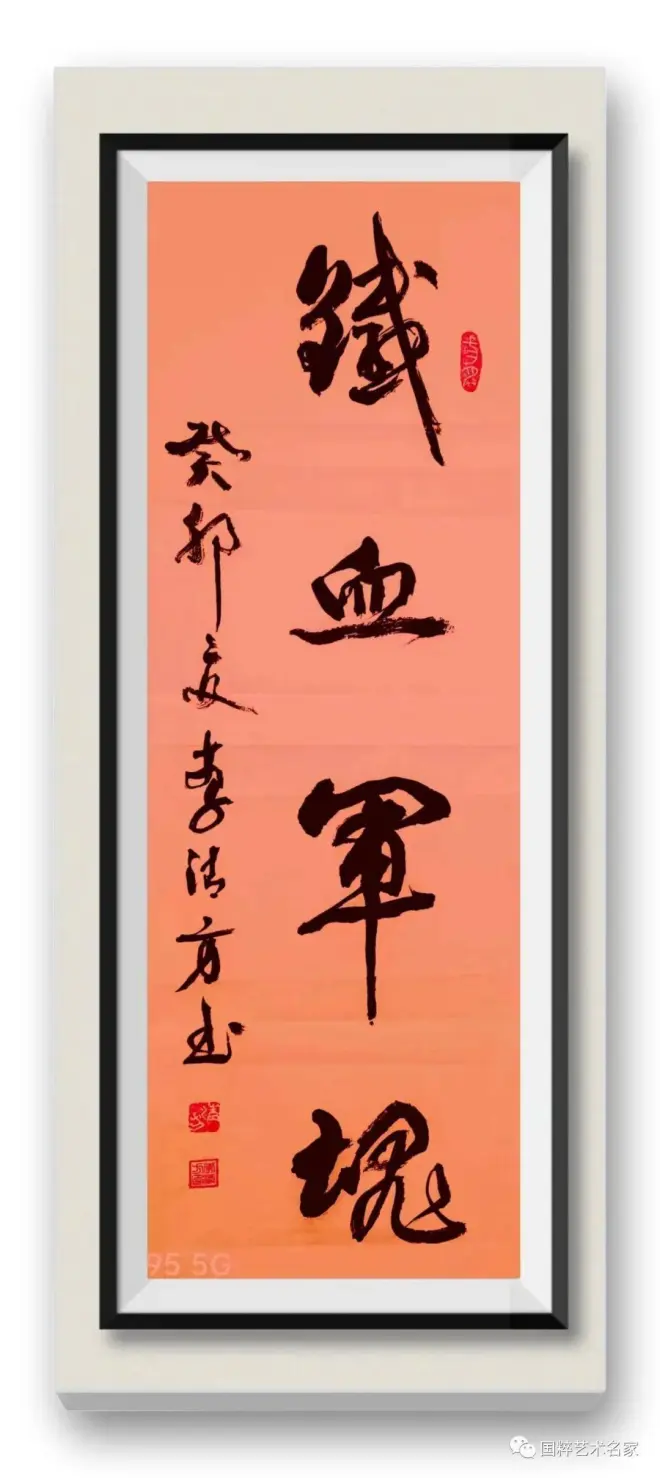 鐵血軍魂
癸卯夏李清方书
95 5G
国粹艺术名家